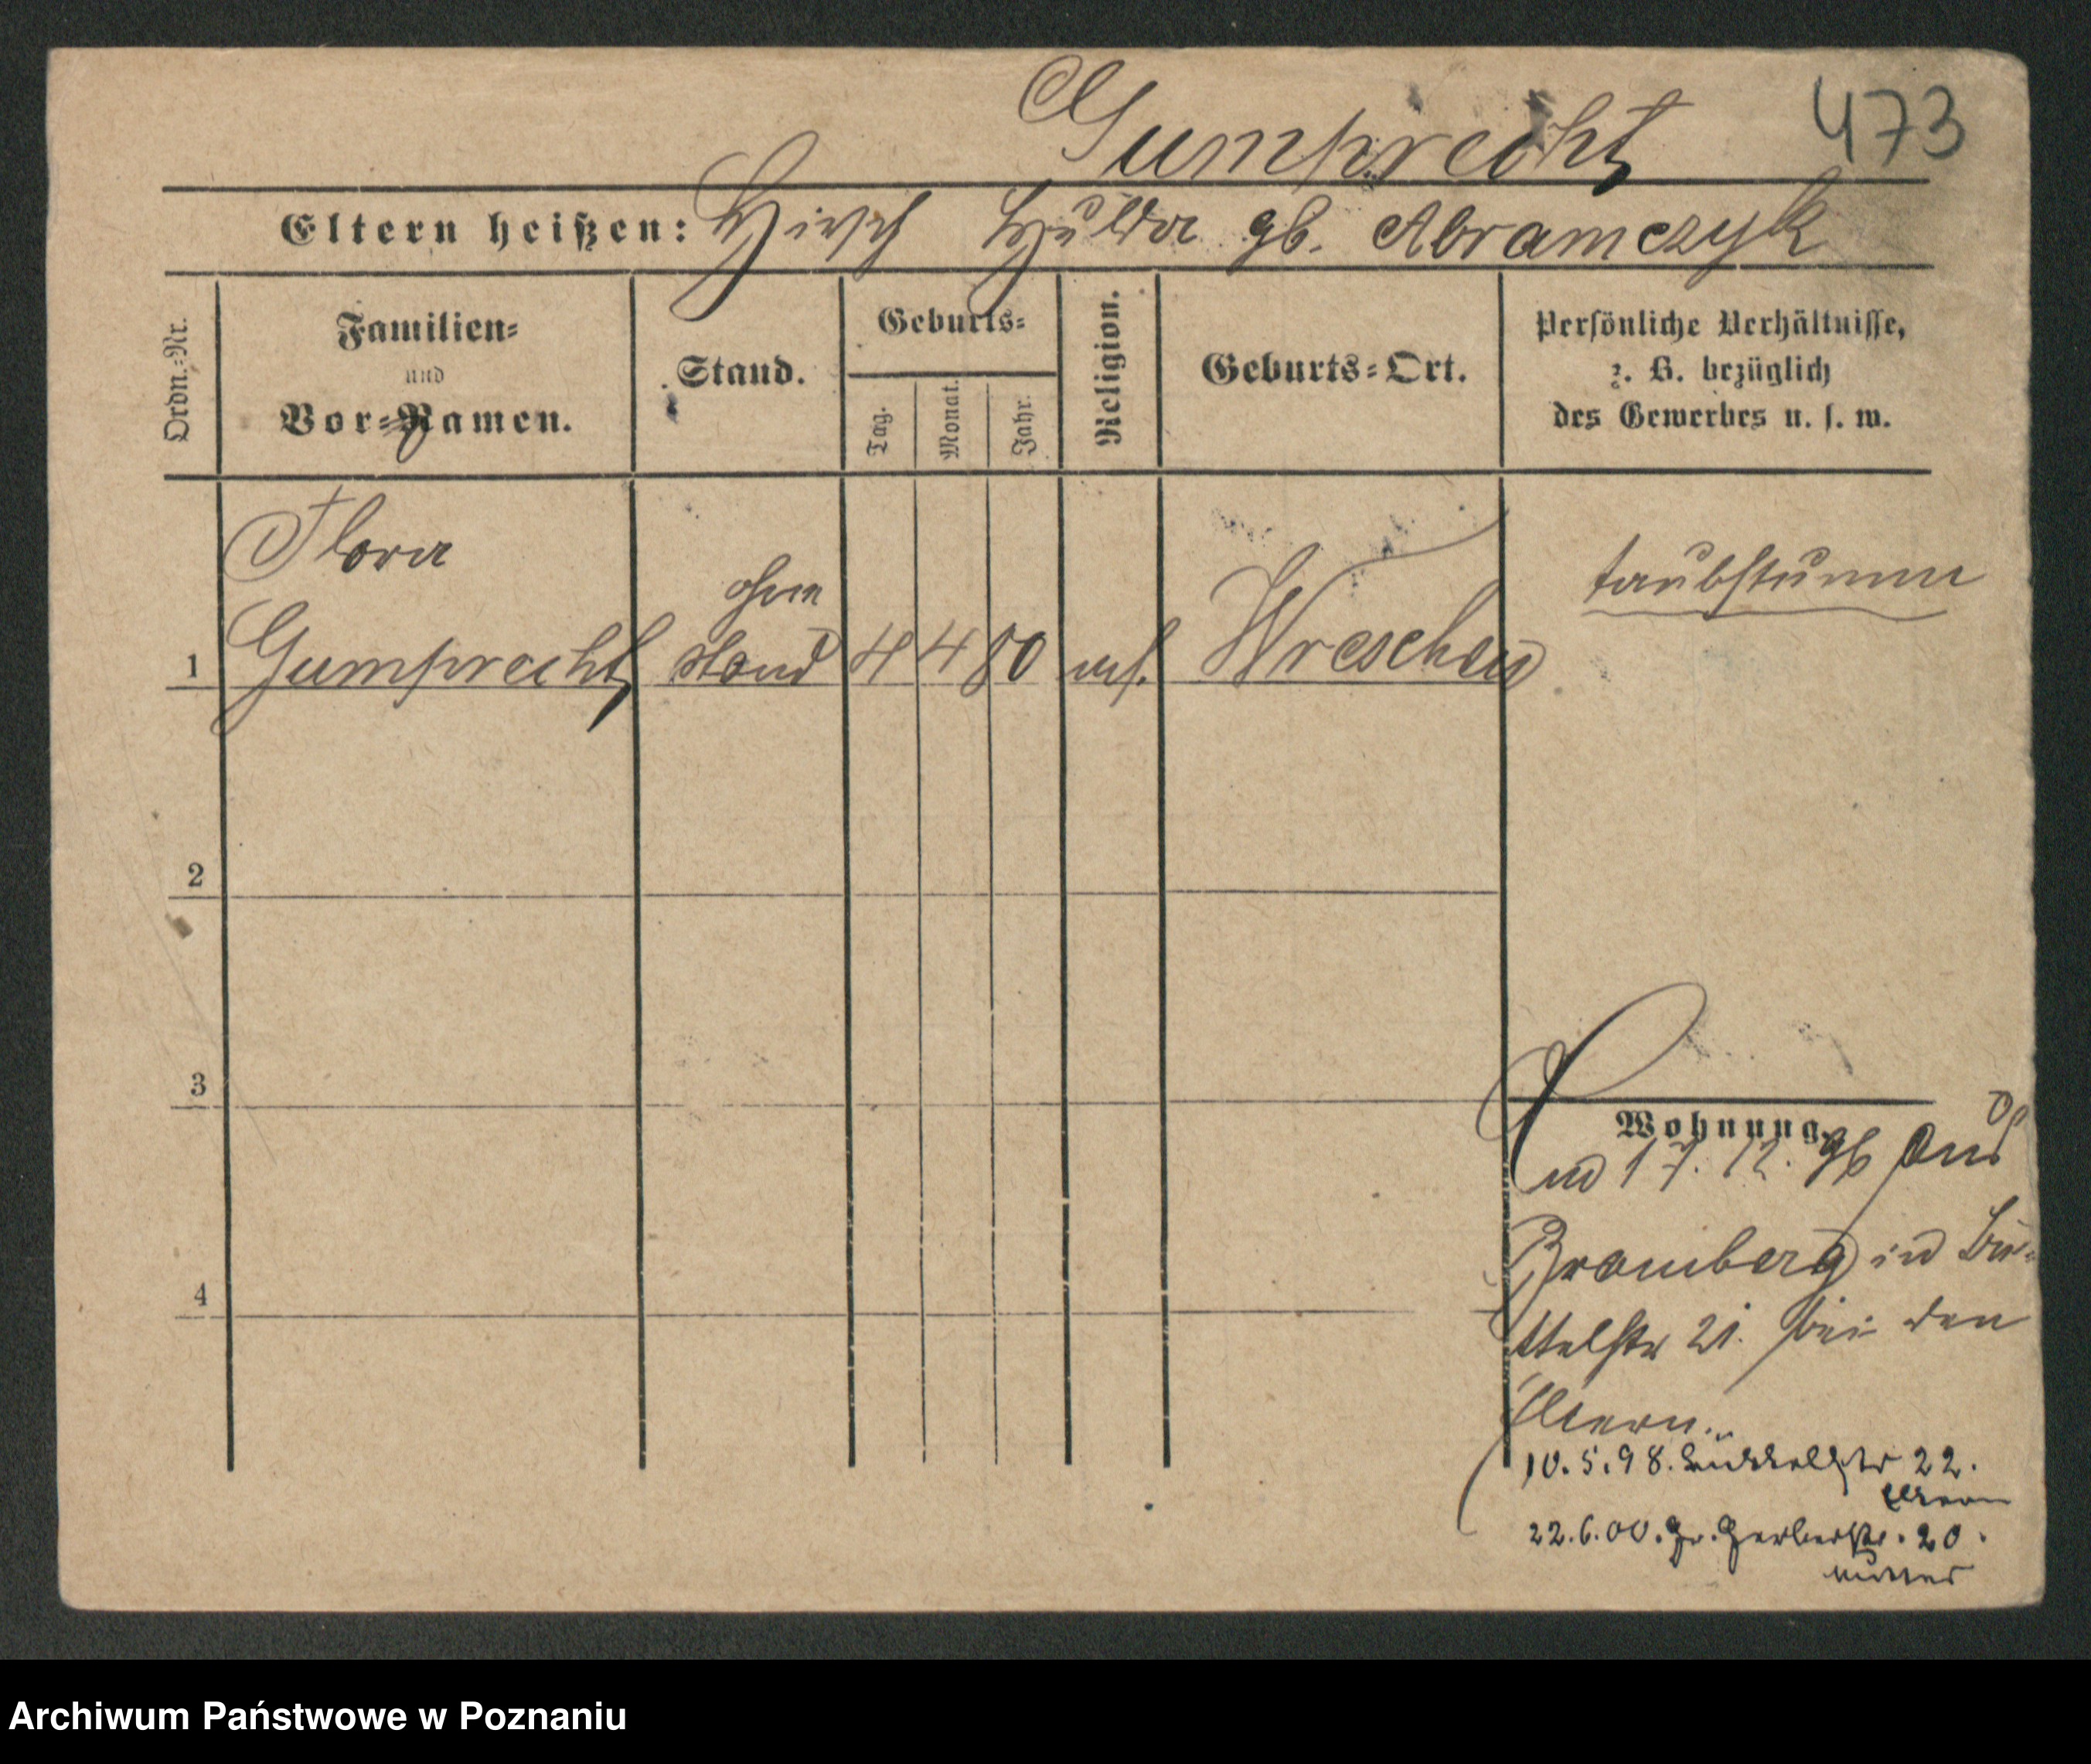 Gumprecht
473
Eltern heißen: Hirsch Hulda gb. Abramczyk
Ordn.-Nr.
Familien-
und
Vor-Namen.
Stand.
Geburts-
Tag.
Monat.
Jahr.
Religion.
Geburts-Ort.
Persönliche Verhältnisse,
z. B. bezüglich
des Gewerbes u. s. w.
Flora
ohne
taubstumm
1 Gumprecht stand 4 4 80 mos. Wreschen
2
3
Wohnung.
17. 12. 96 aus
Bromberg in Bü-
4
ttelstr 21. bei den
Eltern.
10.5.98. Büttelstr 22.
Eltern
22.6.00. Gr. Gerberstr. 20.
Mutter
Archiwum Państwowe w Poznaniu